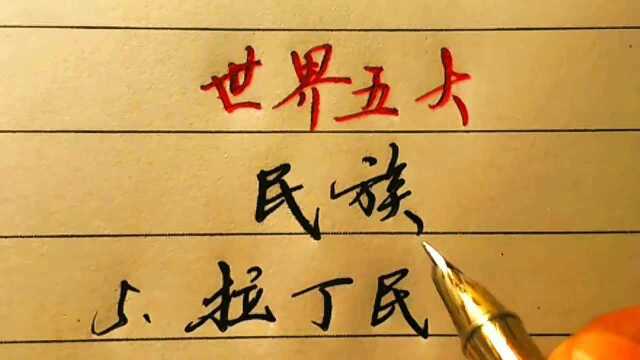 世界五大
民族
5、拉丁民